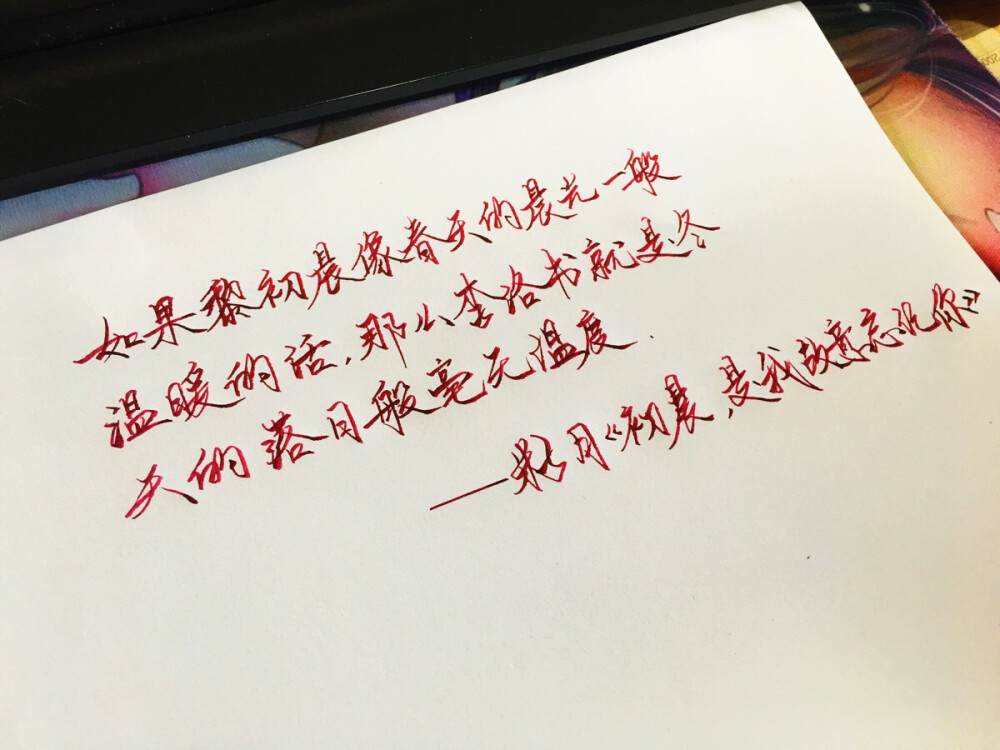 如果黎初晨像春天的晨光一般
温暖的话,那么李洛书就是冬
天的落日般毫无温度.
——月《初晨,是我故意忘记你》